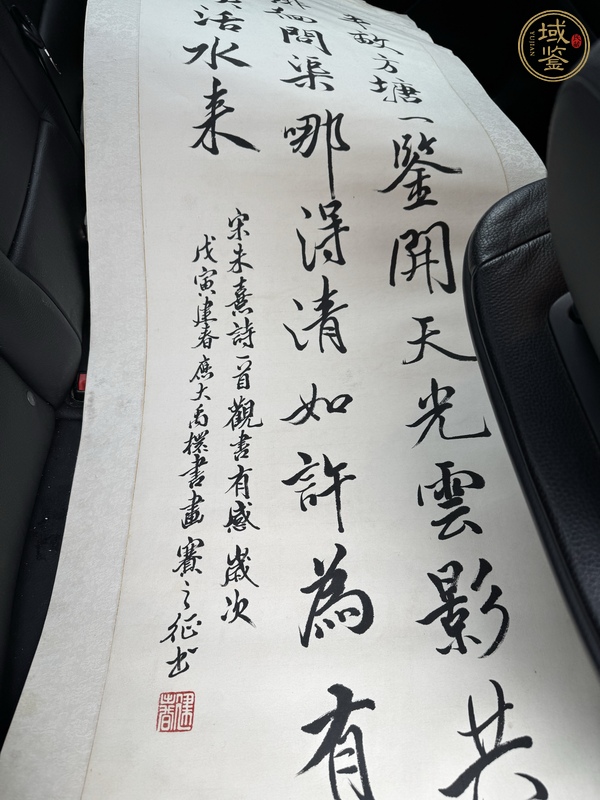 半畝方塘一鑒開天光雲影共
問渠哪得清如許為有
活水来
宋朱熹詩一首觀書有感歲次
戊寅建春應大禹杯書畫賽之征書
域鉴
YUJIAN